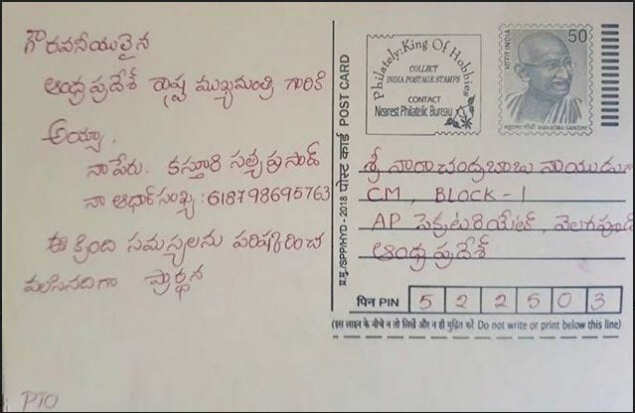 గౌరవనీయులైన
ఆంధ్రప్రదేశ్ రాష్ట్ర ముఖ్యమంత్రి గారికి
అయ్యా,
నా పేరు. కస్తూరి సత్యప్రసాద్
నా ఆధార్ సంఖ్య : 618798695763
ఈ క్రింది సమస్యలను పరిష్కరించ
వలసినదిగా ప్రార్థన
PTO
Philately: King Of Hobbies
COLLECT
INDIA POSTAGE STAMPS
CONTACT
Nearest Philatelic Bureau
भारत INDIA
50
महात्मा गांधी MAHATMA GANDHI
प्र.मु./SPP/HYD - 2018 पोस्ट कार्ड POST CARD
శ్రీ నారా చంద్రబాబు నాయుడుగారు
CM, BLOCK - 1
AP సెక్రటరియేట్, వెలగపూడి
ఆంధ్రప్రదేశ్
पिन PIN 5 2 2 5 0 3
(इस लाइन के नीचे न तो लिखें और न ही मुद्रित करें Do not write or print below this line)